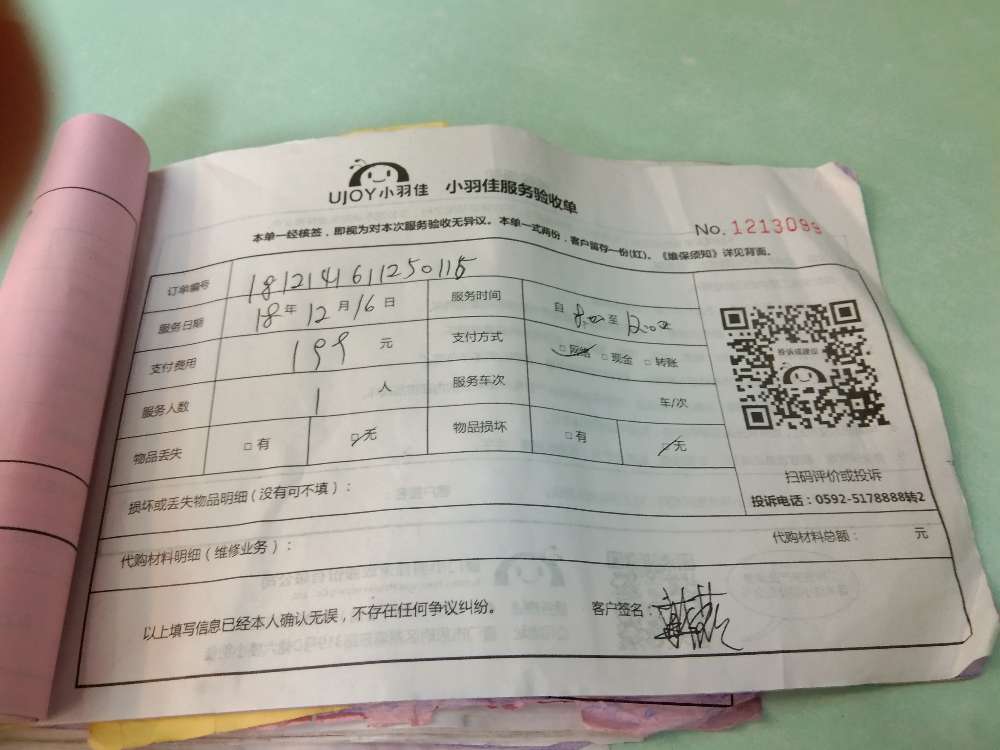 UJOY小羽佳 小羽佳服务验收单
No. 1213099
本单一经核签，即视为对本次服务验收无异议。本单一式两份，客户留存一份(红)。《维保须知》详见背面。
订单编号 181214161125011
服务日期 18 年 12 月 16 日 服务时间 自 8:00 至 12:00
支付费用 199 元 支付方式 □网络 □现金 □转账
服务人数 1 人 服务车次 车/次
物品丢失 □有 □无 物品损坏 □有 □无
投诉或建议
扫码评价或投诉
投诉电话：0592-5178888转2
损坏或丢失物品明细（没有可不填）：
代购材料明细（维修业务）： 代购材料总额： 元
以上填写信息已经本人确认无误，不存在任何争议纠纷。 客户签名：